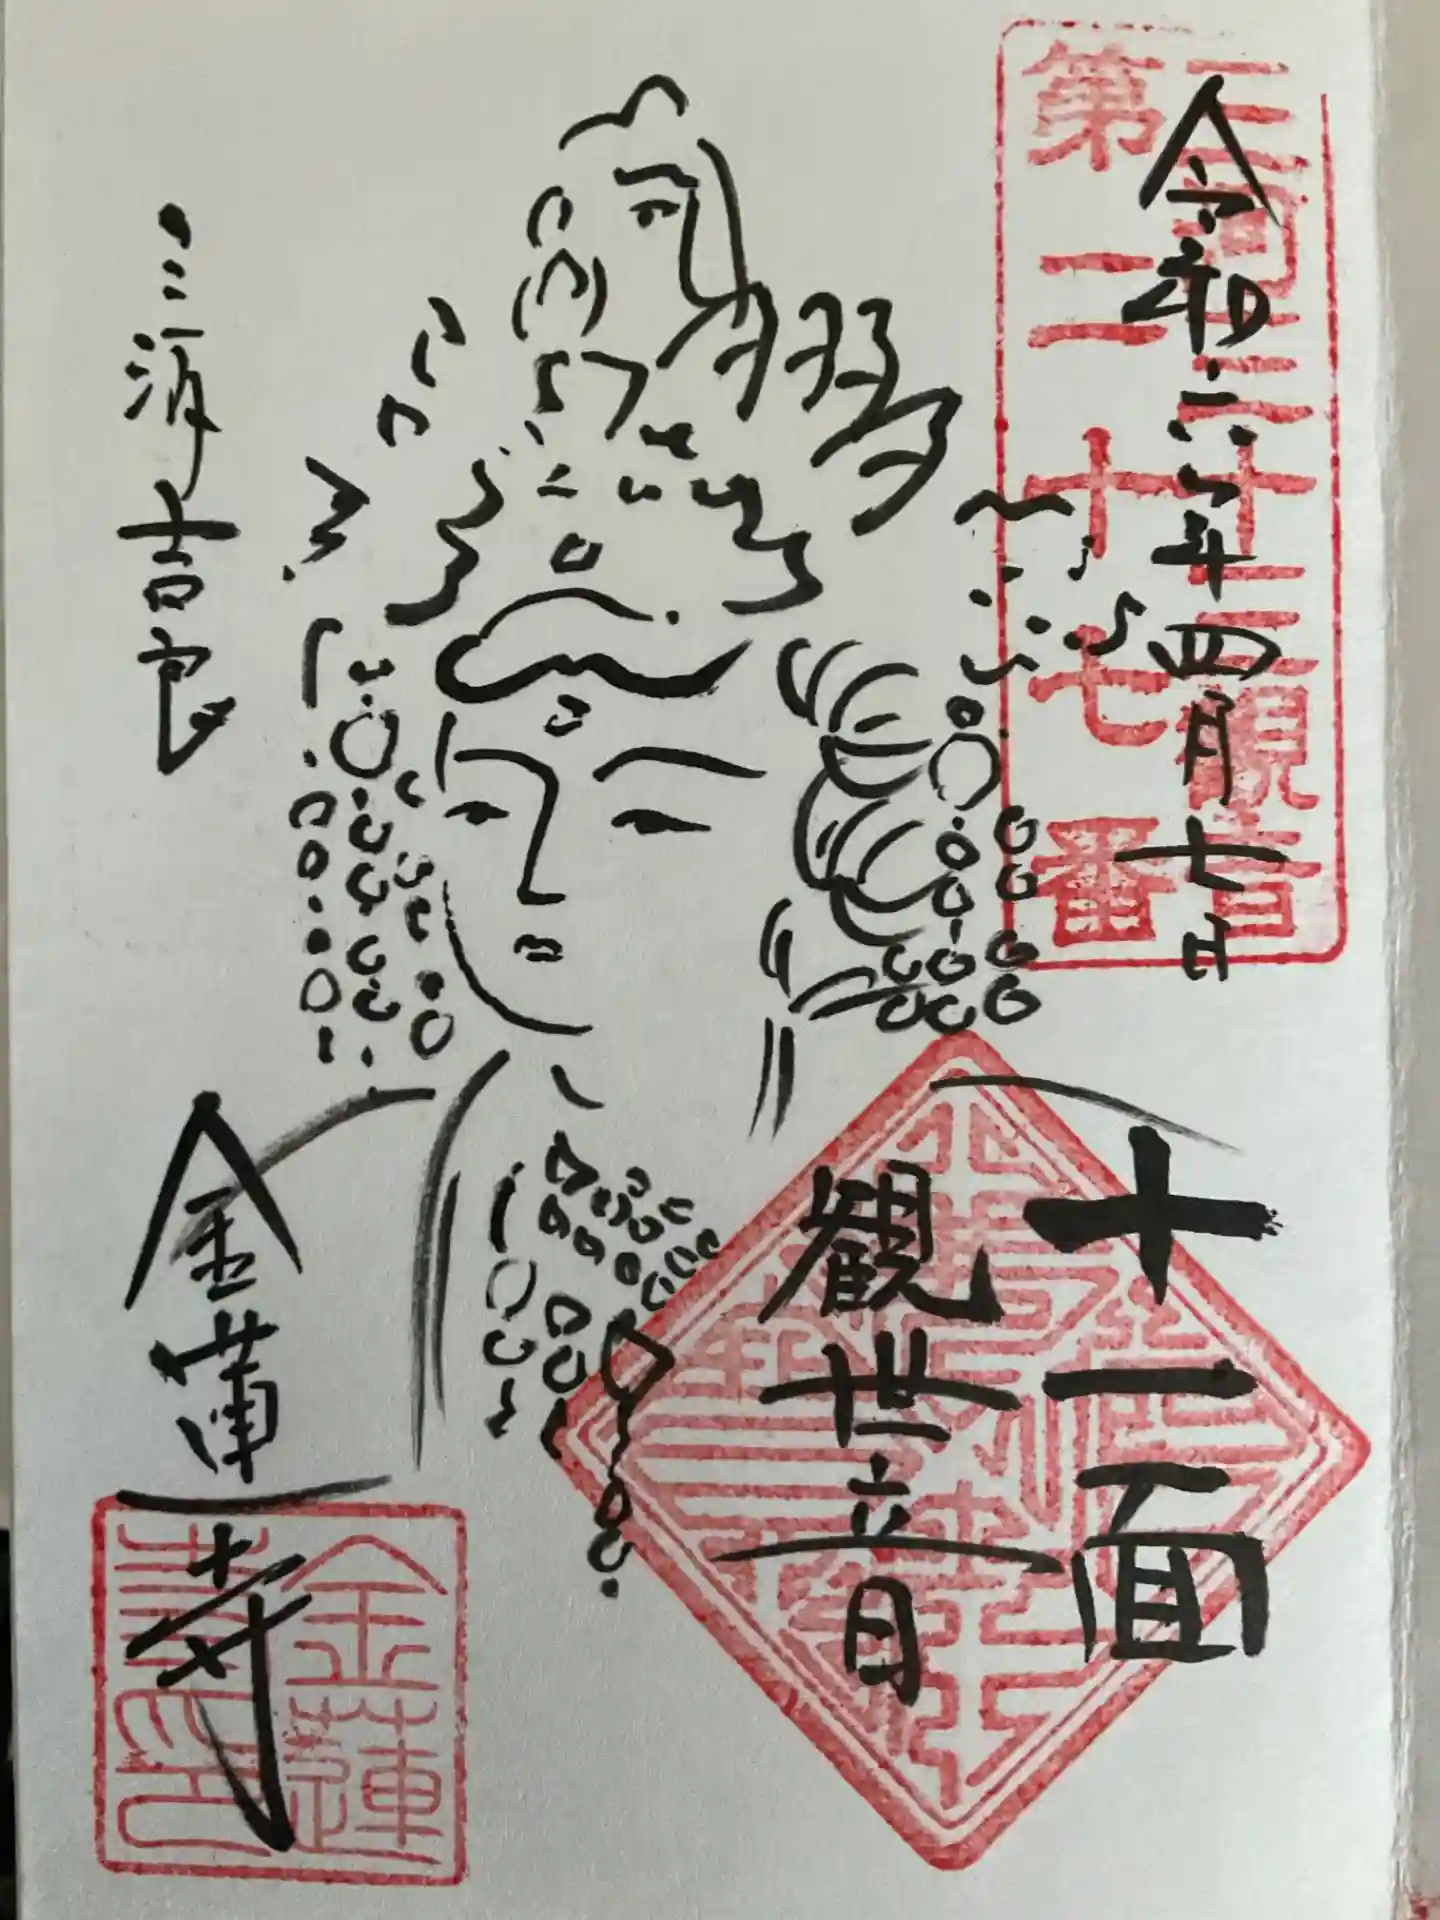 三河三十三観音
第二十七番
令和六年四月七日
十一面
観世音
三河吉良
金蓮寺
金蓮
寺印